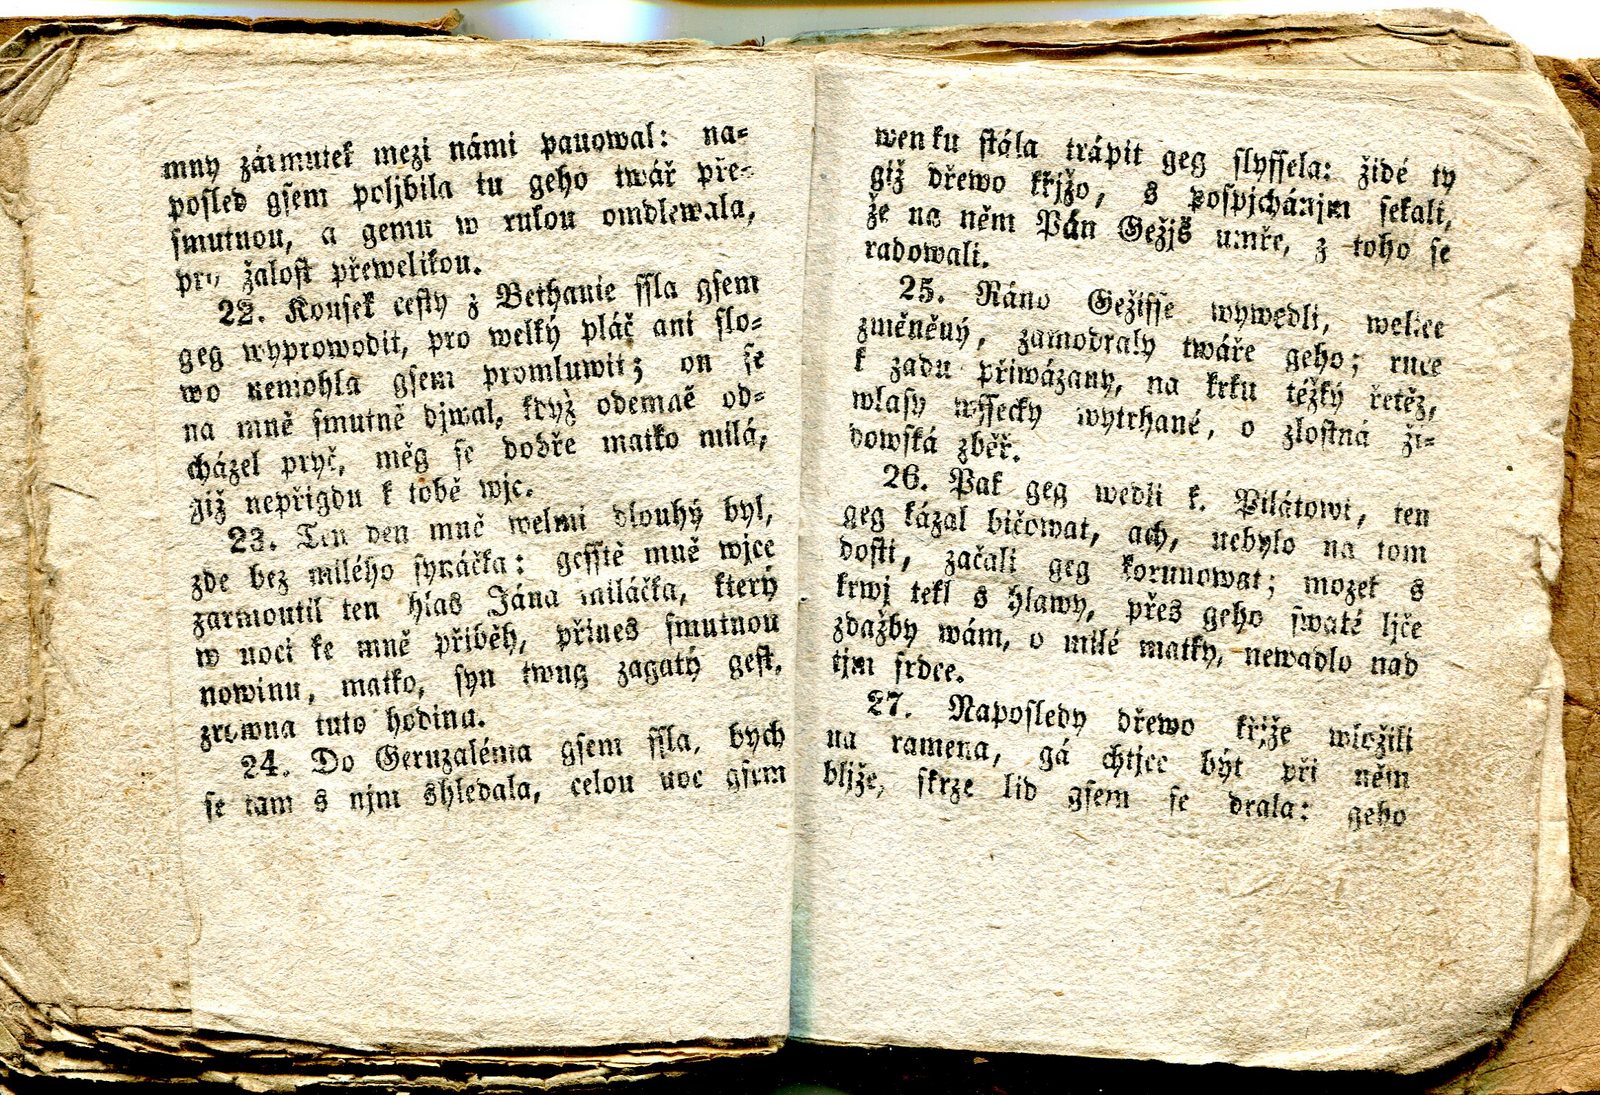 mny zármutek mezi námi panowal: na=
posled gsem poljbila tu geho twář pře=
smutnou, a gemu w rukou omdlewala,
pro žalost přewelikou.
22. Kousek cesty z Bethanie ssla gsem
geg wyprowodit, pro welký pláč ani slo=
wo nemohla gsem promluwit; on se
na mně smutně djwal, když odemně od=
cházel pryč, měg se dobře matko milá,
giž nepřigdu k tobě wjc.
23. Ten den mně welmi dlouhý byl,
zde bez milého synáčka: gesstě mně wjce
zarmoutil ten hlas Jána miláčka, který
w noci ke mně přiběh, přines smutnou
nowinu, matko, syn twug zagatý gest,
zrowna tuto hodinu.
24. Do Geruzaléma gsem ssla, bych
se tam s njm shledala, celou noc gsem
wenku stála trápit geg slyssela: židé ty
giž dřewo křjžo, s pospjchánjm sekali,
že na něm Pán Gežjš umře, z toho se
radowali.
25. Ráno Gežisse wywedli, welice
změněný, zamodraly twáře geho; ruce
k zadu přiwázany, na krku těžký řetěz,
wlasy wssecky wytrhané, o zlostná ži=
dowská zběř.
26. Pak geg wedli k. Pilátowi, ten
geg kázal bičowat, ach, nebylo na tom
dosti, začali geg korunowat; mozek s
krwj tekl s hlawy, přes geho swaté ljče
zdažby wám, o milé matky, newadlo nad
tjm srdce.
27. Naposledy dřewo křjže wložili
na ramena, gá chtjce být při něm
bljže, skrze lid gsem se drala: geho